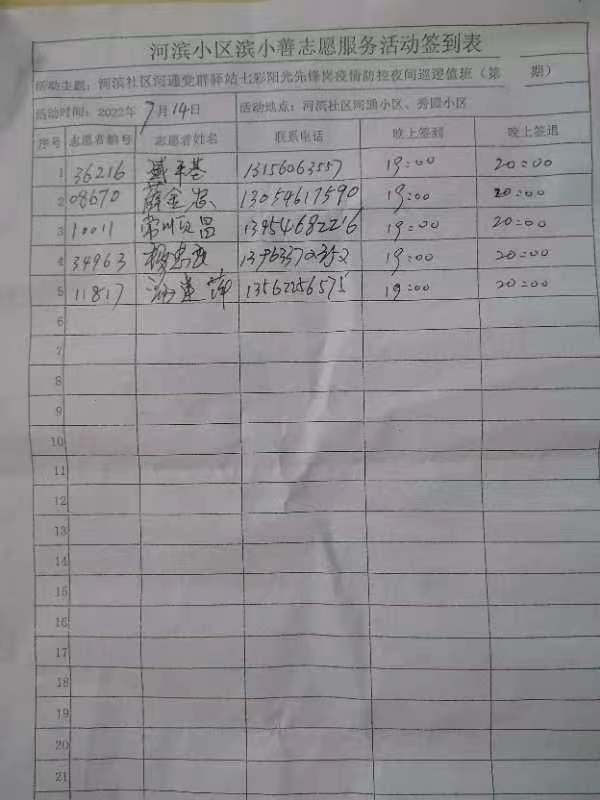 河滨小区滨小善志愿服务活动签到表
活动主题：河滨社区河通党群驿站七彩阳光先锋岗疫情防控夜间巡逻值班（第 期）
活动时间：2022年7月14日 活动地点：河滨社区河涌小区、秀园小区
序号 志愿者编号 志愿者姓名 联系电话 晚上签到 晚上签退
1 36216 盛平基 13156063557 19:00 20:00
2 08670 薛金岩 13054617590 19:00 20:00
3 10011 常顺昌 13954682216 19:00 20:00
4 34963 杨 13963372352 19:00 20:00
5 11817 莲萍 13562256575 19:00 20:00
6
7
8
9
10
11
12
13
14
15
16
17
18
19
20
21